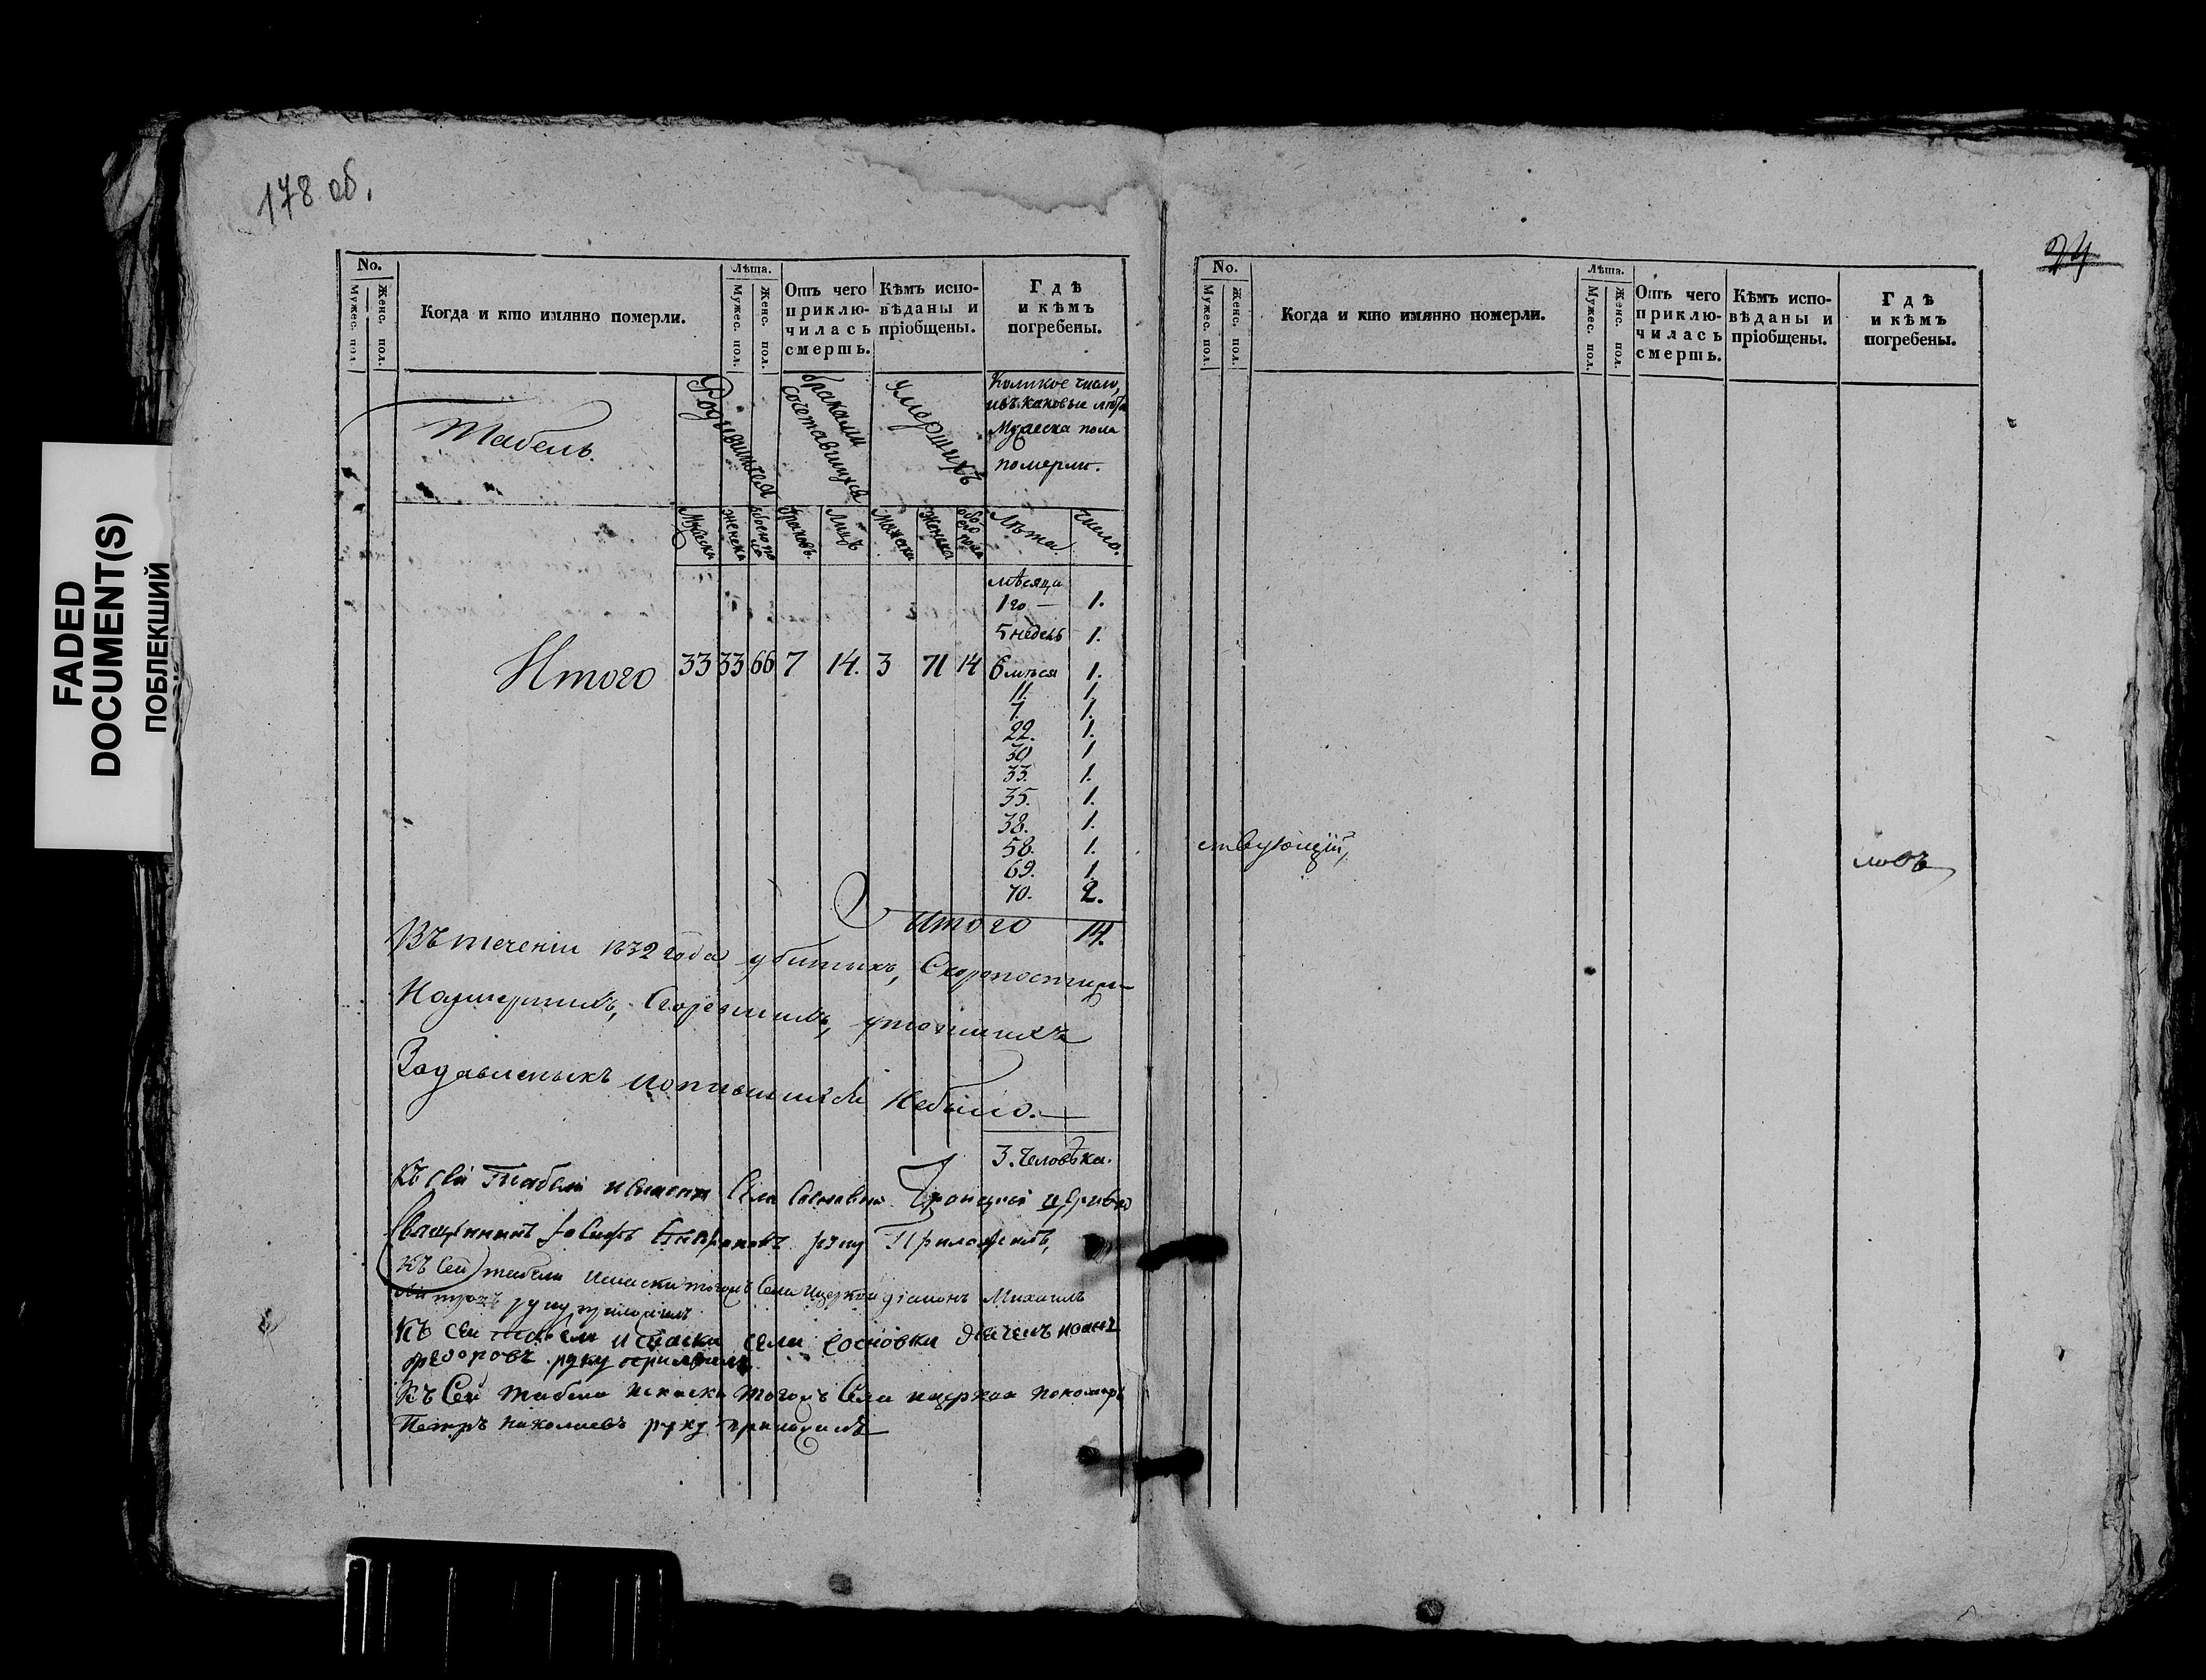 178 об.
FADED
DOCUMENT(S)
ПОБЛЕКШИЙ
No.
Мужес. пол
Женс. пол.
Когда и кто имянно померли.
Лѣта.
Мужес. пол.
Женс. пол.
Отъ чего
приклю-
чилась
смерть.
Кѣмъ испо-
вѣданы и
пріобщены.
Гдѣ
и кѣмъ
погребены.
Табель.
Родившихся
браками
сочетавшихся
Умершихъ
Коликое число,
и въ каковыя лѣта
Мужеска пола
померли.
Мужеска
женска
обоего по
ла
браковъ.
Лицъ
Мужеска
Женска
обо-
его
пола
Лѣта.
Число.
мѣсяца
1го — 1.
5 недель 1.
Итого 33 33 66 7 14. 3 71 14 6 мѣся 1.
11. 1.
7. 1.
22. 1.
30 1
33. 1.
35. 1.
38. 1.
58. 1.
69. 1.
70. 2.
Итого 14.
Въ теченіи 1832 года убитыхъ, Скоропостиж-
Ноумершихъ, Сгоревшихъ, утопшихъ
Задавленыхъ Иопившихся Небыло.—
3. человѣка.
Къ сей Табели Села Троицкой церкви
Священникъ Іосифъ руку Приложилъ,
Къ Сей табели тогожъ Села ицеркви діаконъ Михаилъ
руку приложилъ
Къ сей табели села сосновки дьячекъ иоанъ
федоровъ руку приложилъ
Къ Сей табели тогожъ Села ицеркви пономарь
Петръ николаевъ руку приложилъ
24
No.
Мужес. пол.
Женс. пол.
Когда и кто имянно померли.
Лѣта.
Мужес. пол.
Женс. пол.
Отъ чего
приклю-
чилась
смерть.
Кѣмъ испо-
вѣданы и
пріобщены.
Гдѣ
и кѣмъ
погребены.
ствующій
ловъ